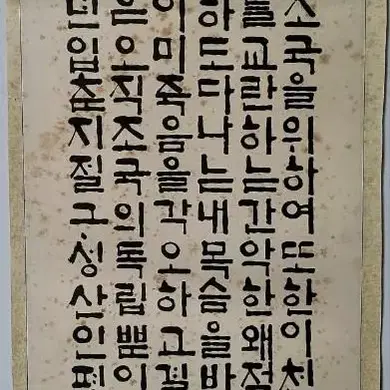 조국을위하여또한이
를교란하는간악한왜적
하도다나는내목슴을바
이미죽음을각오하고결
은오직조국의독립뿐이
입춤지질그성산인